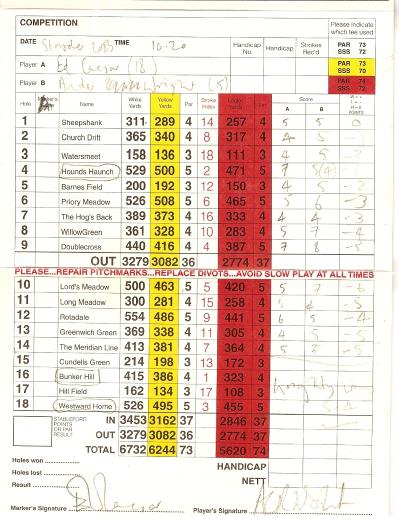 COMPETITION
Please Indicate which tee used
DATE TIME 10.20
Handicap No. Handicap Strokes Rec'd
PAR 73
SSS 72
Player A Ed (18)
PAR 73
SSS 70
Player B
PAR 74
SSS 72
Hole Name White Yards Yellow Yards Par Stroke Index Yards Par Score A B
1 Sheepshank 311 289 4 14 257 4 5 5 0
2 Church Drift 365 340 4 8 317 4 4 5
3 Watersmeet 158 136 3 18 111 3 4 5 -2
4 Hounds Haunt 529 500 5 2 471 5 7
5 Barnes Field 200 192 3 12 150 3 4 5 -2
6 Priory Meadow 526 508 5 6 465 5 5 6 -3
7 The Hog's Back 389 373 4 16 333 4 4 4 -3
8 WillowGreen 361 328 4 10 283 4 5 7 -4
9 Doublecross 440 416 4 4 387 5 7 8 -5
OUT 3279 3082 36 2774 37
PLEASE...REPAIR PITCHMARKS...REPLACE DIVOTS...AVOID SLOW PLAY AT ALL TIMES
10 Lord's Meadow 500 463 5 5 420 5 5 7 -6
11 Long Meadow 300 281 4 15 258 4 -5
12 Rotadale 554 486 5 9 441 5 6 5 -4
13 Greenwich Green 369 338 4 11 305 4 4 5 -5
14 The Meridian Line 413 381 4 7 364 4 5 5 -5
15 Cundells Green 214 198 3 13 172 3
16 Bunker Hill 415 386 4 1 323 4
17 Hill Field 162 134 3 17 108 3
18 Westward Home 526 495 5 3 455 5
STABLEFORD POINTS OR PAR RESULT
IN 3453 3162 37 2846 37
OUT 3279 3082 36 2774 37
TOTAL 6732 6244 73 5620 74
Holes won
HANDICAP
Holes lost
NETT
Result
Marker's Signature
Player's Signature